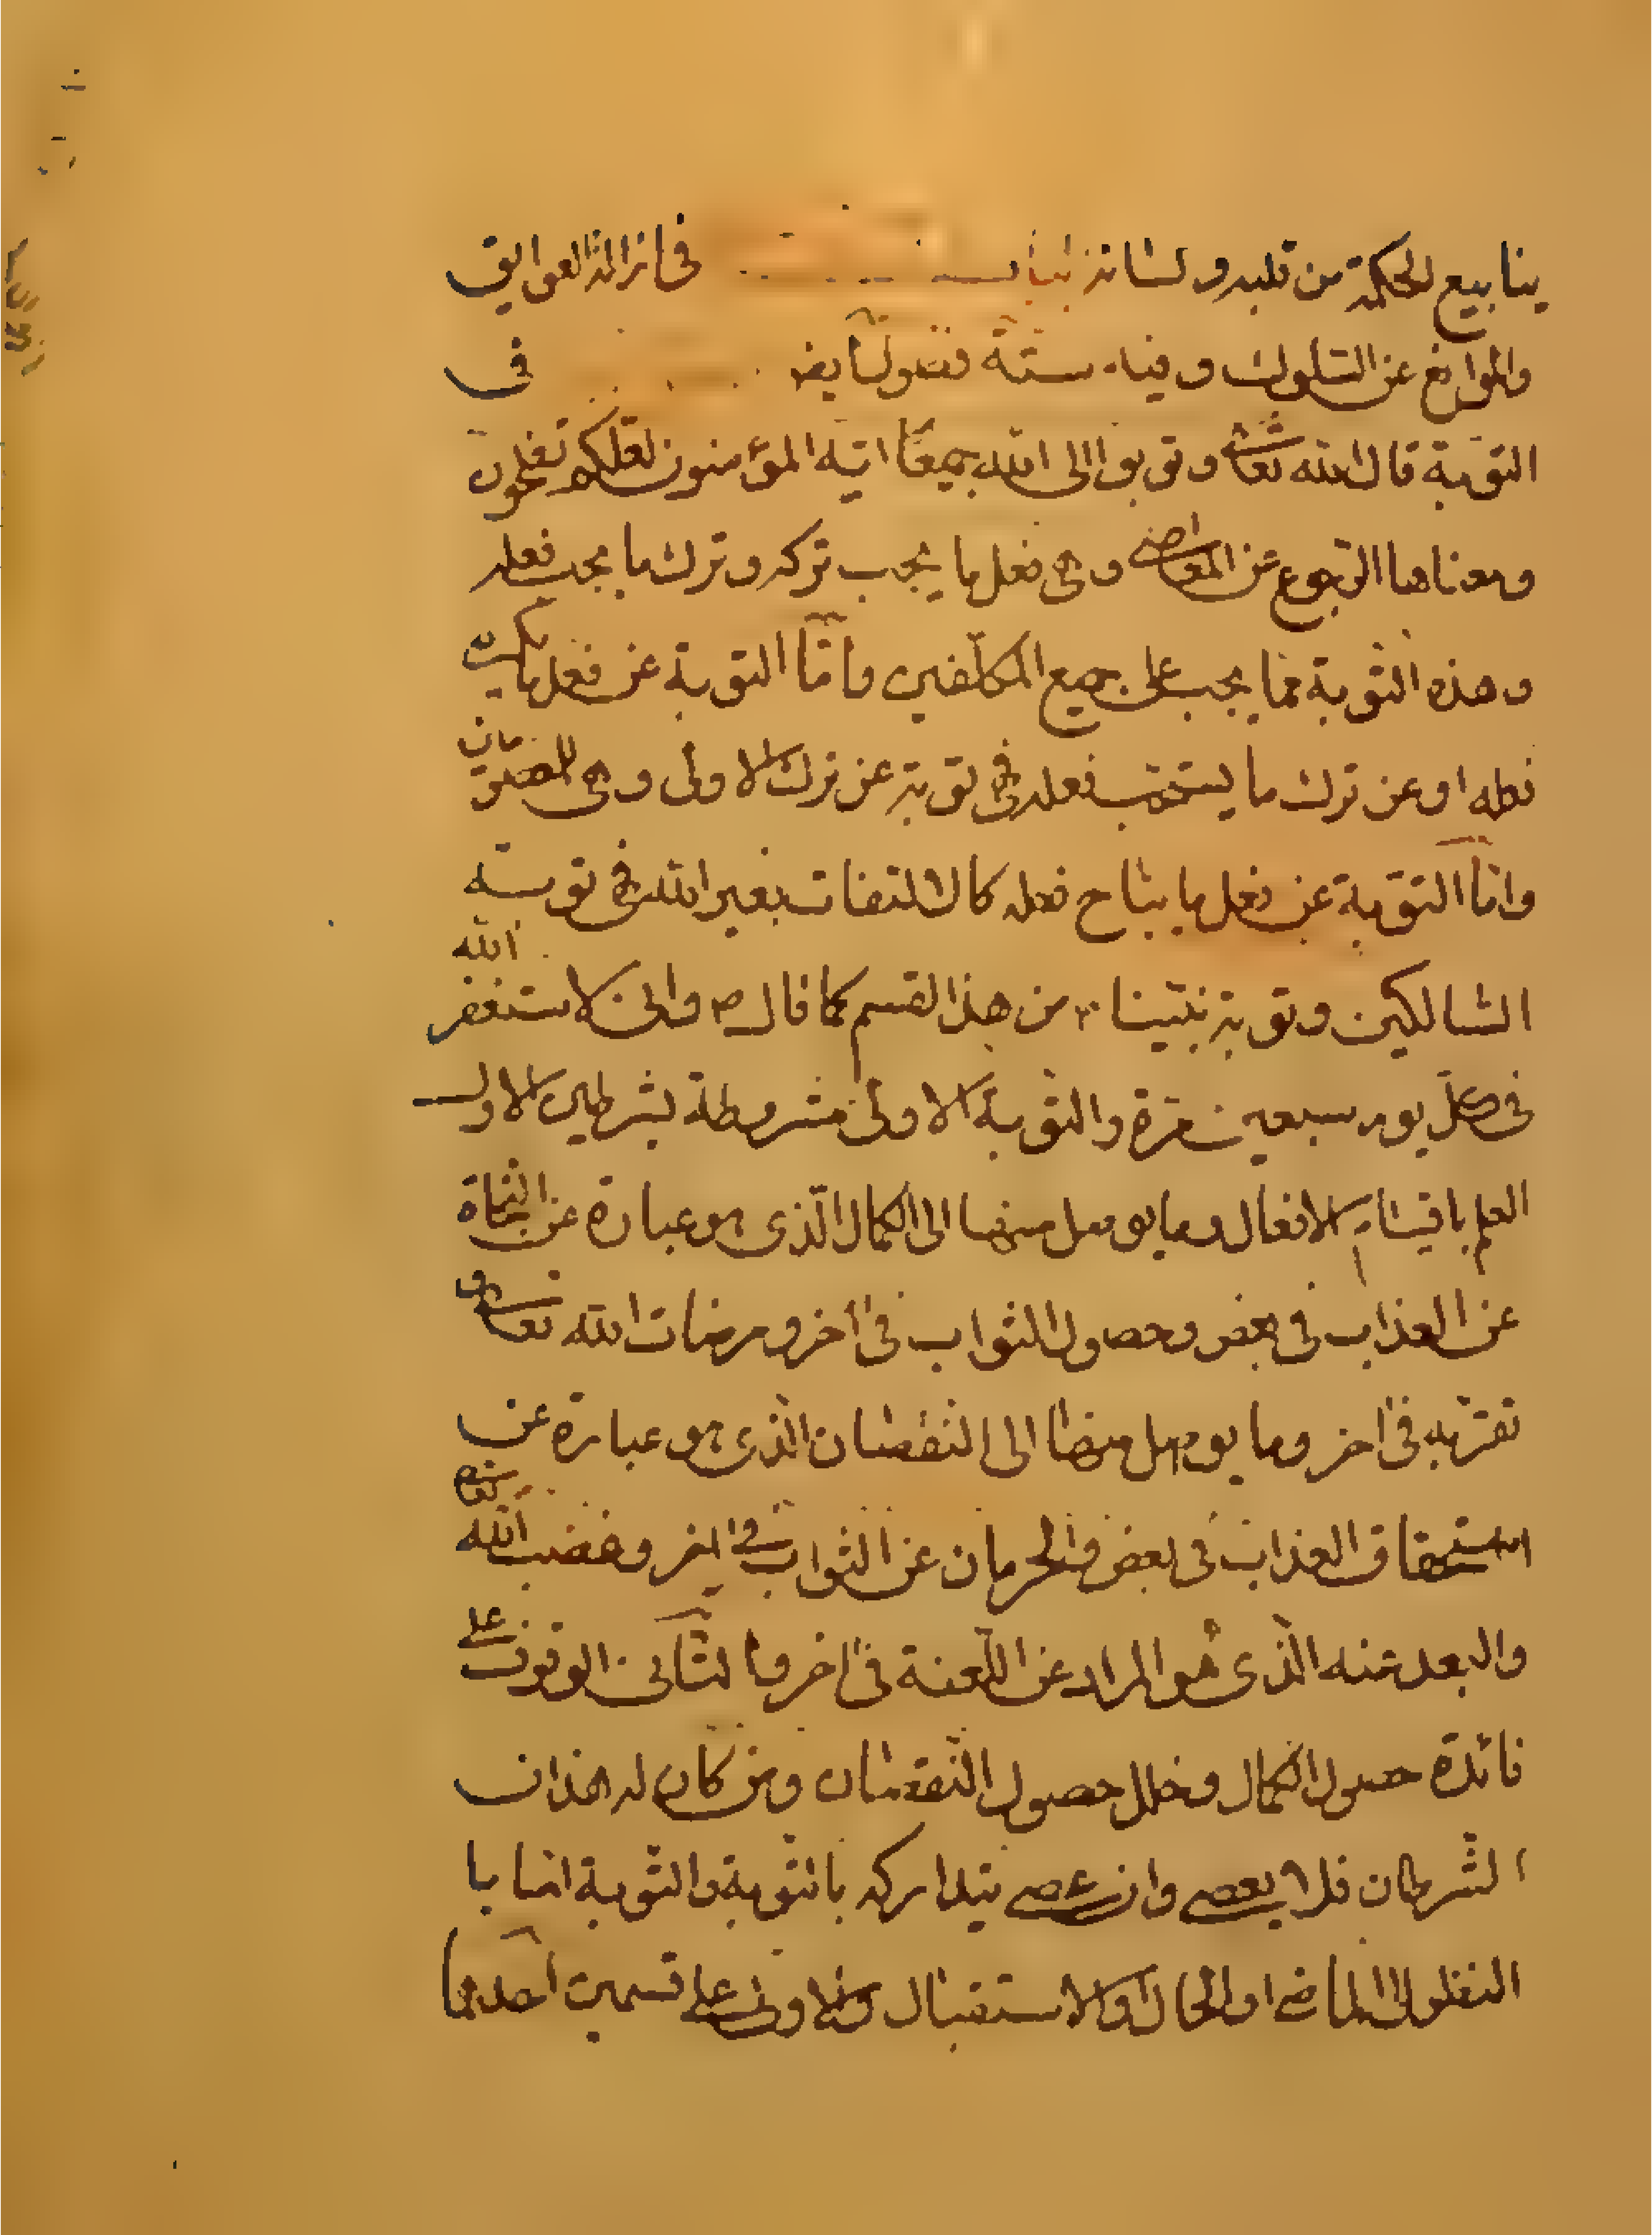 ينابيع الحكمة من قلبه ولسانه باب في ازالة العوايق
والموانع عن السلوك وفيه ستة فصول في
التوبة قال الله تعالى وتوبوا الى الله جميعا ايه المؤمنون لعلكم تفلحون
ومعناها الرجوع عن المعاصى وهى فعل ما يجب تركه وترك ما يجب فعله
وهذه التوبة مما يجب على جميع المكلفين واما التوبة عن فعل ما يكره
فعله او عن ترك ما يستحب فعله فهى توبة عن ترك الاولى وهى للمعصومين
واما التوبة عن فعل ما يباح فعله كالالتفات بغير الله فهى توبة
السالكين وتوبة نبينا من هذا القسم كما قال ص وانى لاستغفر الله
فى كل يوم سبعين مرة والتوبة الاولى مشروطة بشرطين الاول
العلم باقسام الافعال وما يوصل منها الى الكمال الذى هو عبارة عن النجاة
عن العذاب فى بعض وحصول الثواب فى اخر ومرضات الله تعالى و
تقربه فى اخر وما يوصل منها الى النقصان الذى هو عبارة عن
استحقاق العذاب فى بعض والحرمان عن الثواب فى اخر وغضب الله تعالى
والبعد عنه الذى هو المراد عن اللعنة فى اخر والثانى الوقوف على
فائدة حصول الكمال وخلل حصول النقصان ومن كان له هذان
الشرطان فلا يعصى وان عصى يتداركه بالتوبة والتوبة اما با
النظر الى الماضى او الحال او الاستقبال والاولى على قسمين احدهما